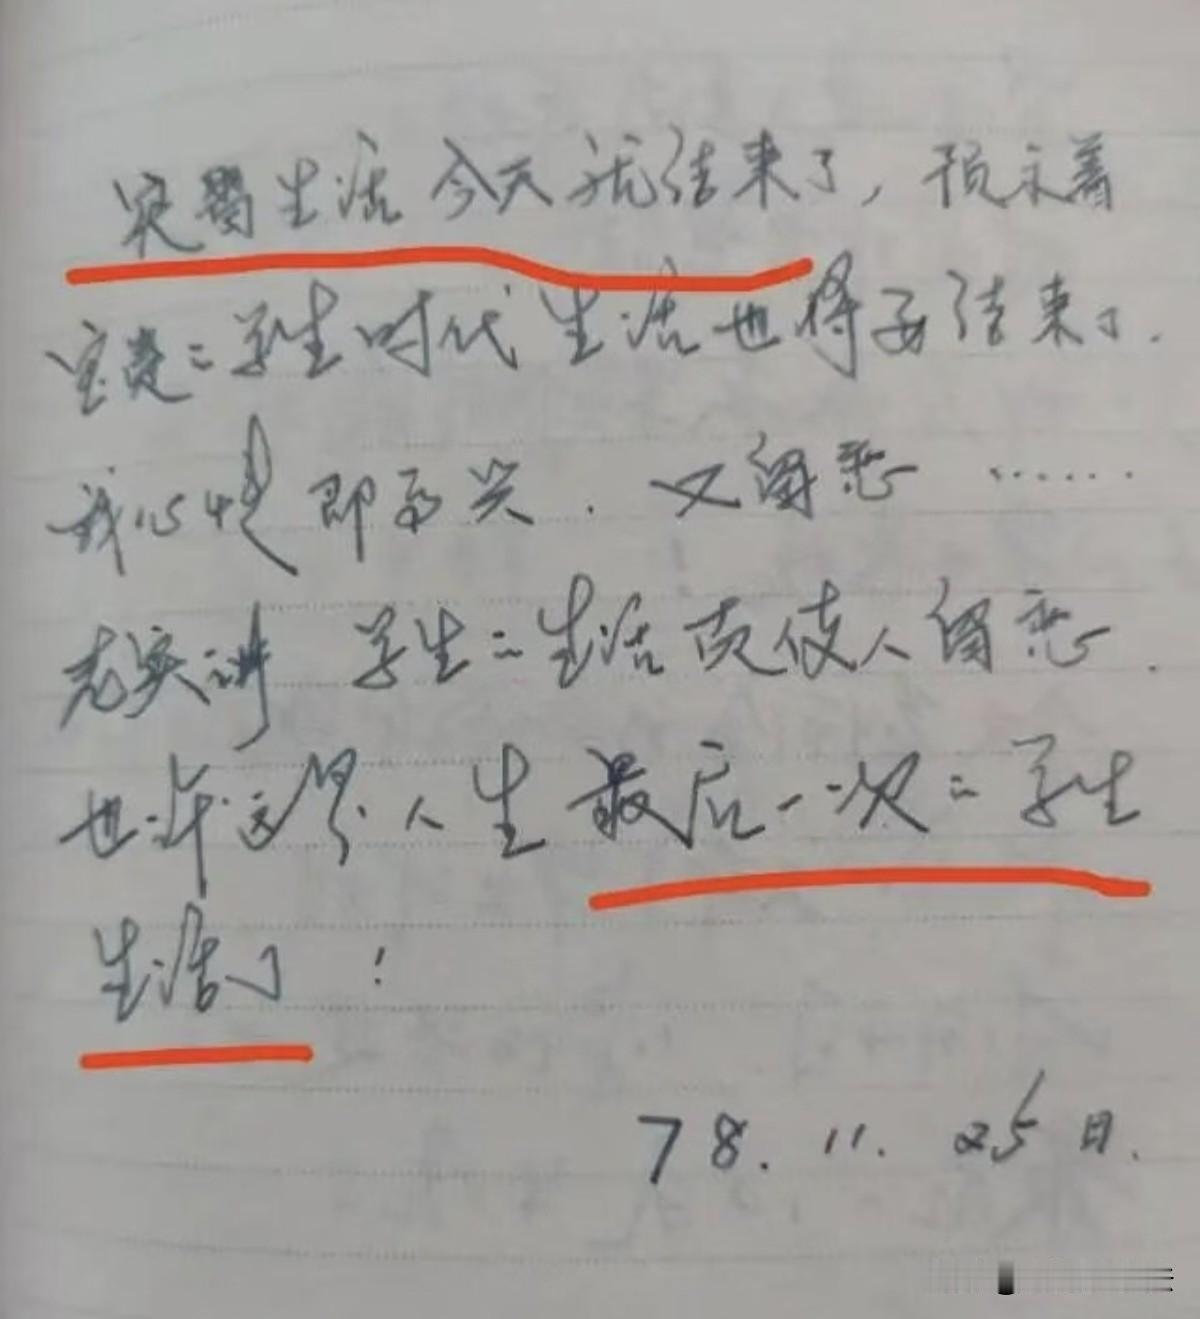 实习生活今天就结束了，预示着
宝贵的学生时代生活也将要结束了.
我心情即高兴.又留恋……
老实讲 学生的生活真使人留恋.
也许这是人生最后一次的学生
生活了！
78.11.25日.